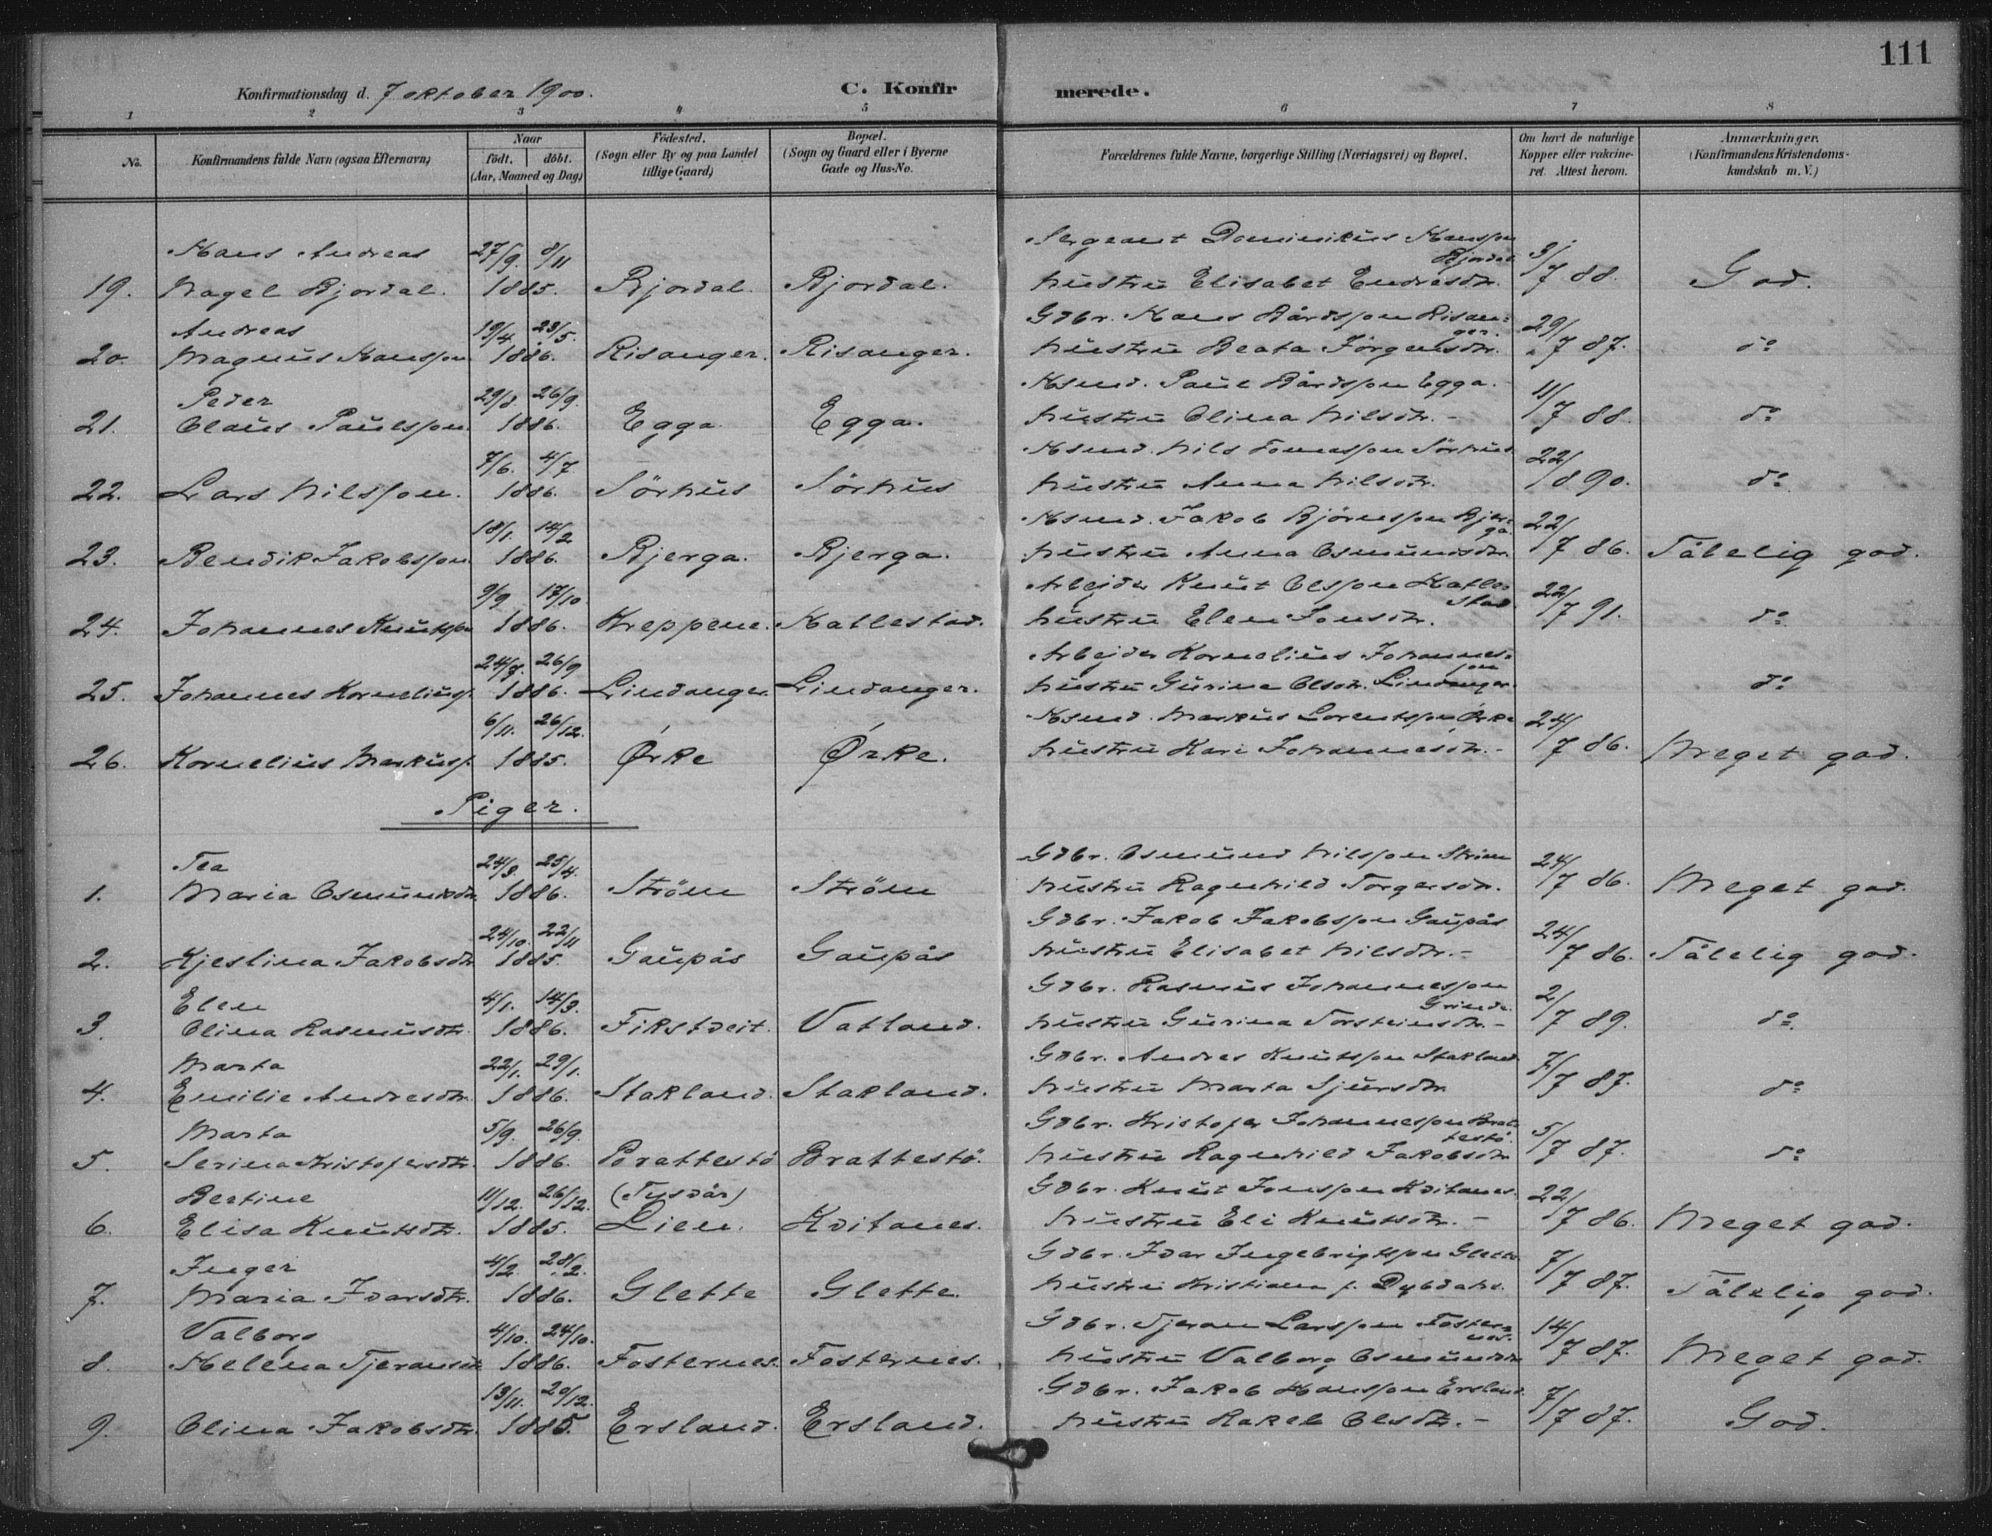 111
Konfirmationsdag d. 7 oktober 1900.
C. Konfirmerede.
1 2 3 4 5 6 7 8
No.
Konfirmandens fulde Navn (ogsaa Efternavn)
Naar
födt. döbt.
(Aar, Maaned og Dag)
Födested.
(Sogn eller By og paa Landet
tillige Gaard)
Bopæl.
(Sogn og Gaard eller i Byerne
Gade og Hus-No.
Forældrenes fulde Navne, borgerlige Stilling (Næringsvei) og Bopæl.
Om havt de naturlige
Kopper eller vakcine-
ret. Attest herom.
Anmærkninger.
(Konfirmandens Kristendoms-
kundskab m. V.)
Hans Andreas 27/9. 8/11 Sergeant Dominikus Hansson
Bjordal
19. Nagel Bjordal. 1885. Bjordal. Bjordal. hustru Elisabet Endresdtr. 3/7 88. God.
Andreas 19/4. 23/5. Gdbr. Hans Bårdsson Risan-
ger.
20. Magnus Hansson 1886. Risanger. Risanger. hustru Beata Jörgensdtr. 29/7 87. do
Peder 29/8. 26/9. Hsmd. Paul Bårdsson Egga.
21. Claus Paulsson. 1886. Egga Egga. hustru Olina Nilsdtr. - 11/7 88. do
7/6. 4/7 Hsmd. Nils Tomasson Sörhus
22. Lars Nilsson. 1886. Sörhus Sörhus hustru Anna Nilsdtr. 22/8 90. do
18/1. 14/2 Hsmd. Jakob Björnsson Bjer-
ga
23. Bendik Jakobsson 1886. Bjerga. Bjerga. hustru Anna Osmundsdtr. 22/7 86. Tålelig god.
9/9 17/10 Arbejder Knut Olsson Hatle-
stad.
24. Johannes Knutsson 1886. Kreppene. Hatlestad. hustru Elen Jonsdtr. 22/7 91. do
24/8. 26/9 Arbejder Kornelius Johannes-
son
25. Johannes Korneliuss. 1886. Lindanger. Lindanger. hustru Gurina Olsdtr. Lindanger. do
6/11. 26/12. Hsmd. Markus Lorentsson Ørke
26. Kornelius Markuss. 1885. Ørke Ørke. hustru Kari Johannesdtr. - 24/7 86. Meget god.
Piger.
Tea 24/3. 25/4. Gdbr. Osmund Nilsson Ström
1. Maria Osmundsdtr. 1886. Ström Ström hustru Ragnhild Torgersdtr. 24/7 86. Meget god.
24/10. 22/11 Gdbr. Jakob Jakobsson Gaupås
2. Kjestina Jakobsdtr 1885. Gaupås Gaupås hustru Elisabet Nilsdtr. - 24/7 86. Tålelig god.
Elen 4/1. 14/3. Gdbr. Rasmus Johannesson
Grinde
3 Olina Rasmusdtr. 1886. Fikstveit. Vatland. hustru Gurina Torsteinsdtr. - 2/7 89. do
Marta 22/1. 29/1. Gdbr. Andres Knutsson Stakland
4. Emilie Andresdtr. 1886. Stakland. Stakland. hustru Marta Sjursdtr. 7/7 87. do
Marta 5/9. 26/9. Gdbr. Kristofer Johannesson Brat-
testö.
5. Serina Kristofersdtr. 1886. Brattestö Brattestö. hustru Ragnhild Jakobsdtr 5/7 87. do
Bertine 11/12. 26/12. (Tysvär) Gdbr. Knut Jonsson Kvitanes.
6. Elisa Knutsdtr. 1885. Lien. Kvitanes. hustru Eli Knutsdtr. - 22/7 86. Meget god.
Inger 4/2. 28/2. Gdbr. Ivar Ingebrigtsson Glette
7. Maria Ivarsdtr. 1886. Glette Glette. hustru Kristiana f. Dybdahl. 7/7 87. Tålelig god.
Valborg 4/10. 24/10. Gdbr. Tjeran Larsson Foster-
nes.
8. Helena Tjeransdtr 1886. Fosternes. Fosternes. hustru Valborg Osmundsdtr 14/7 87. Meget god.
13/11. 20/12. Gdbr. Jakob Hansson Ersland.
9. Olina Jakobsdtr. 1885. Ersland. Ersland. hustru Rakel Olsdtr. - 7/7 87. God.